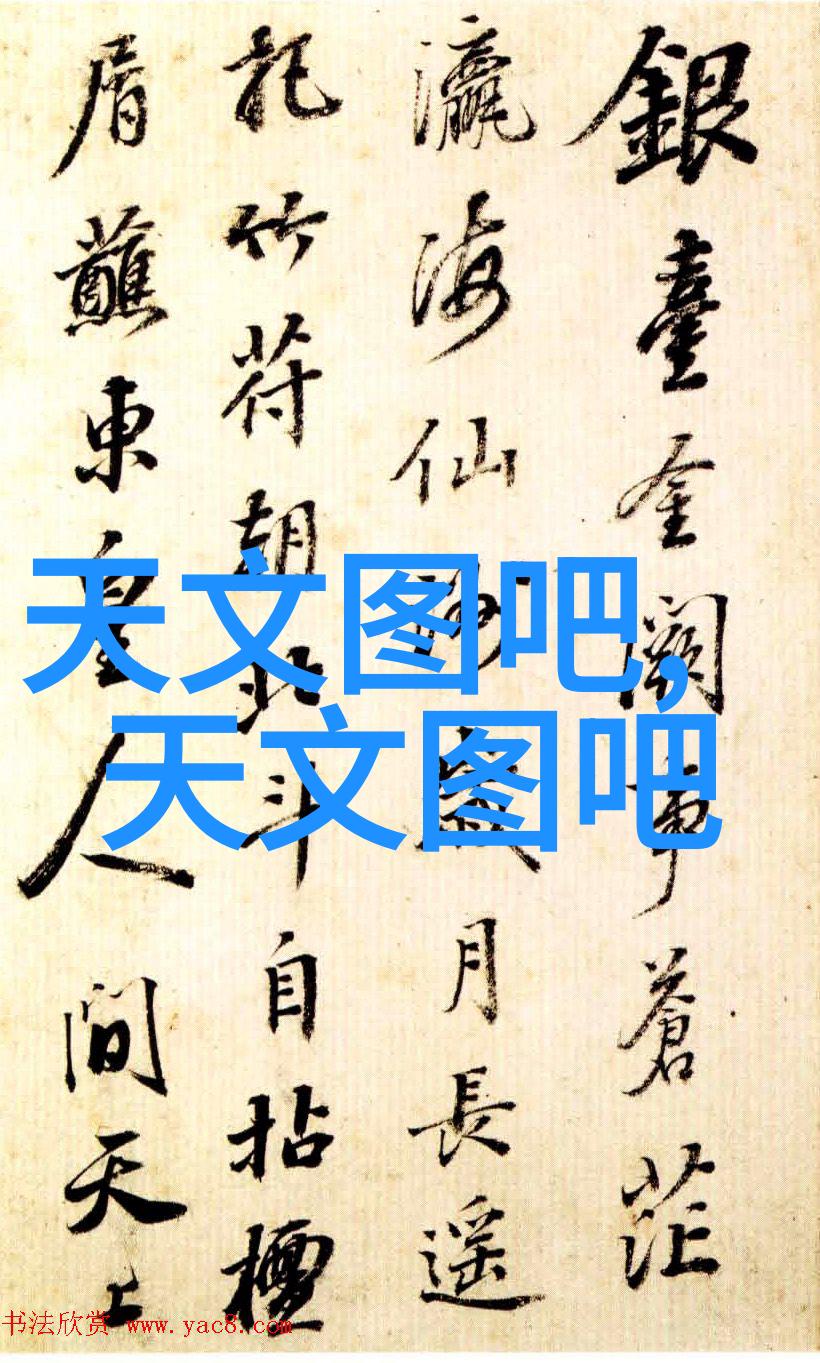 銀臺金闕事蒼茫
瀛海仙洲歲月長遥
記竹符朝北斗自拈檀
屑蘸東皇人間天上
天文图吧,
天文图吧
书法欣赏 www.yac8.com